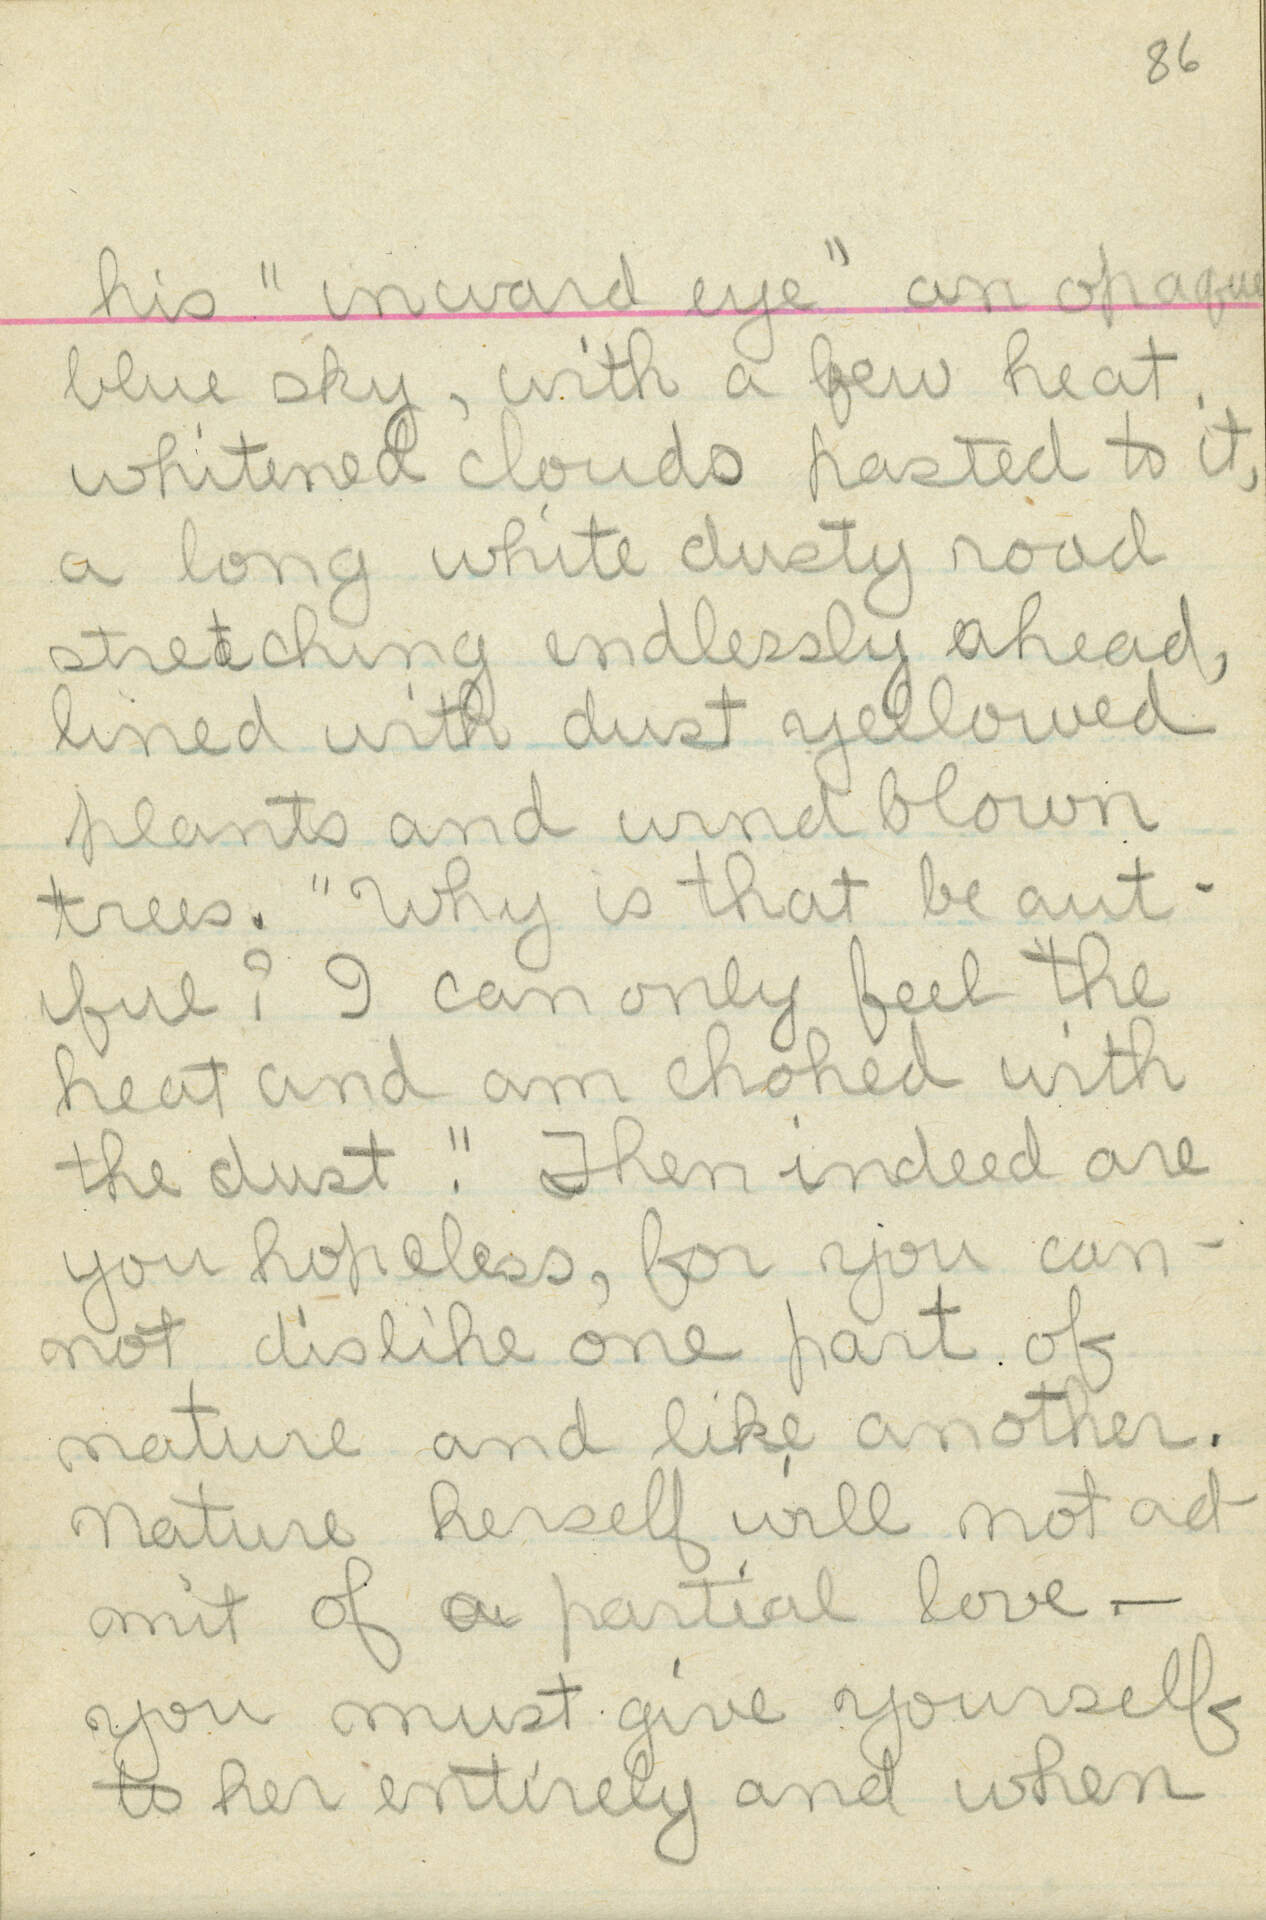 86
his "inward eye" an opaque
blue sky, with a few heat
whitened clouds pasted to it,
a long white dusty road
stretching endlessly ahead,
lined with dust yellowed
plants and wind blown
trees. "Why is that beaut-
iful? I can only feel the
heat and am choked with
the dust". Then indeed are
you hopeless, for you can-
not dislike one part of
nature and like another.
Nature herself will not ad-
mit of a partial love —
you must give yourself
to her entirely and when